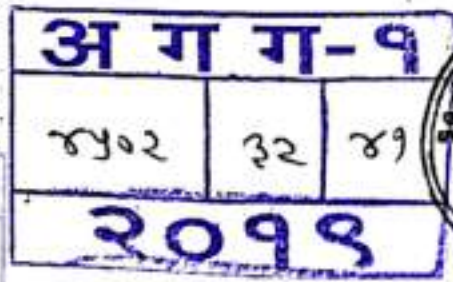 अ ग ग-१
४५०२ ३२ ४१
२०१९